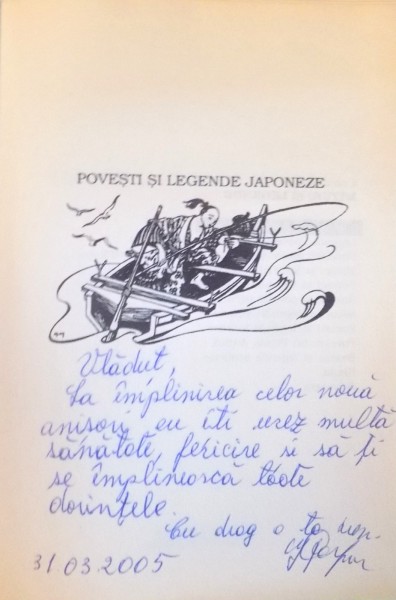 POVEȘTI ȘI LEGENDE JAPONEZE
Vlăduț,
La împlinirea celor nouă
anișori, eu iți urez multă
sănătate, fericire și să ți
se împlinească toate
dorințele.
Cu drag
31.03.2005